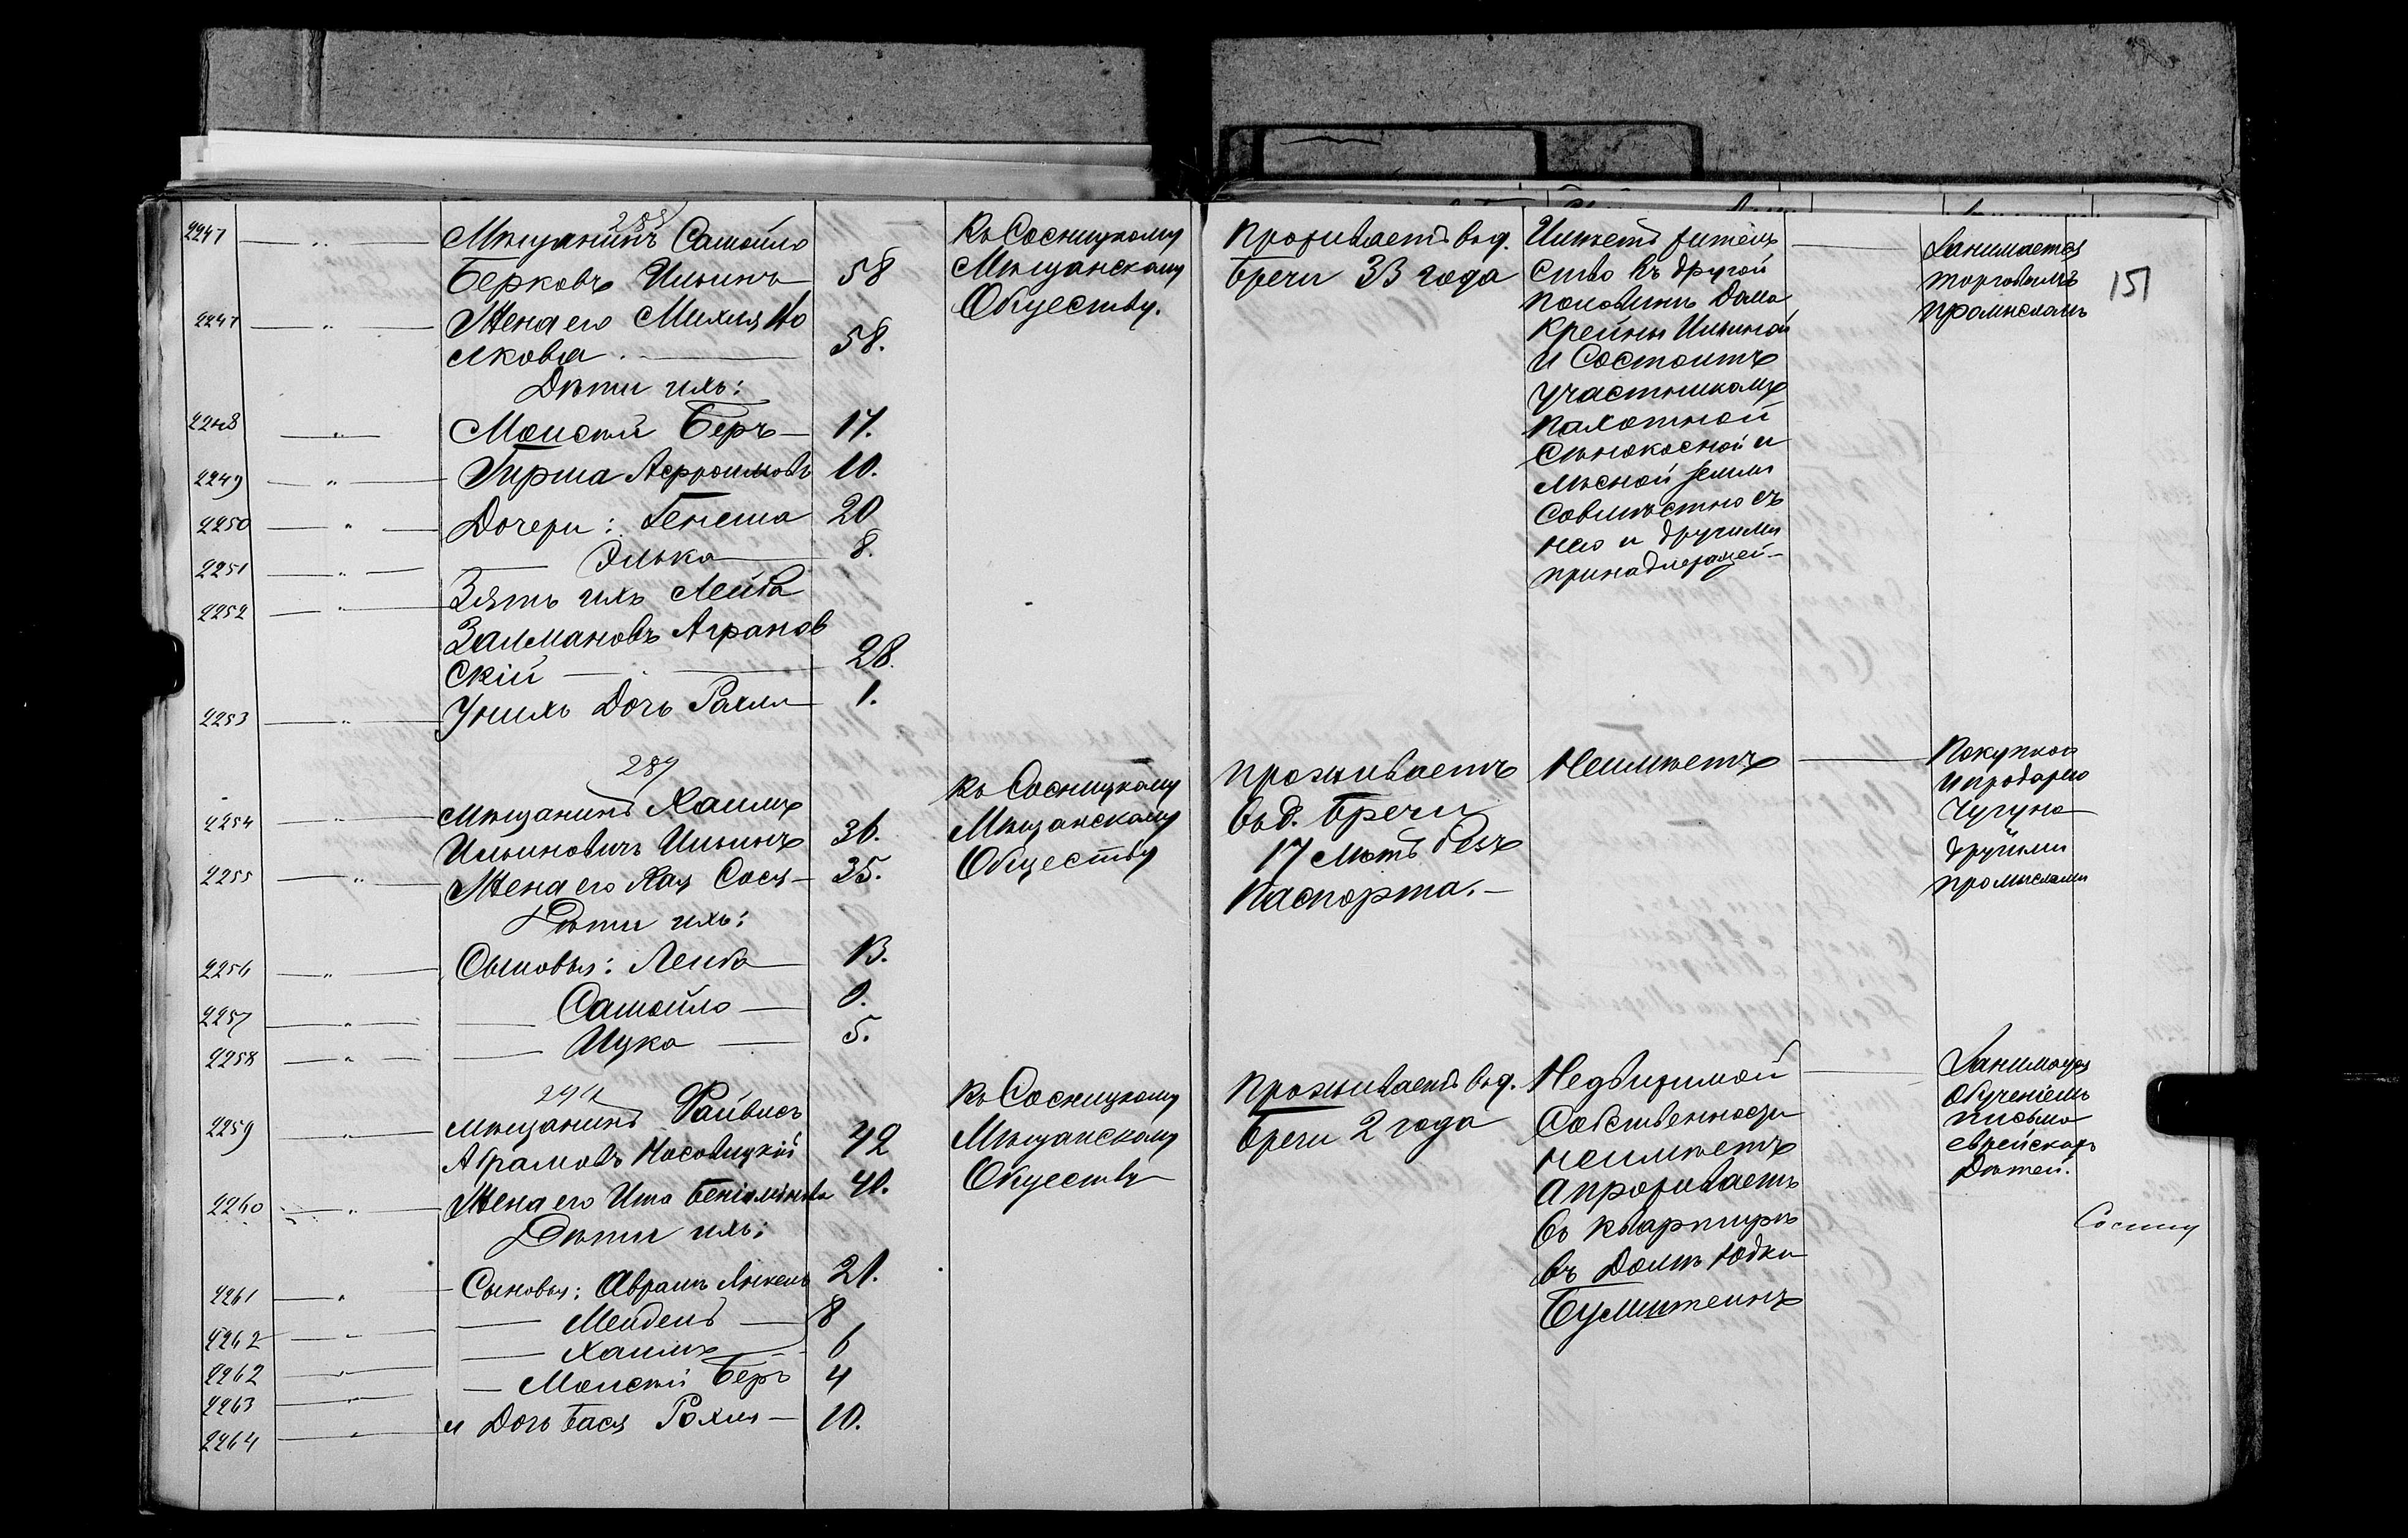 288
2247 Мѣщанинъ Самойло
Берковъ Ильинъ 58
2247 Жена его Михля Но
ликова 58.
Дѣти ихъ:
2248 Моисей Беръ 17.
2249 Гирша Афроимовъ 10.
2250 Дочери: Генеша 20
2251 Элька 8.
2252 Зять ихъ Лейба
Залмановъ Агранов
скій 28.
2253 У нихъ дочь Рахля 1.
Къ Сосницкому
Мѣщанскому
Обществу.
Проживаетъ въ д.
Бречи 33 года
Имѣетъ житель
ство въ другой
половинѣ дома
Крейны Ильиной
и состоитъ
участникомъ
пахотной
сѣнокосной и
лѣсной земли
совмѣстно съ
нею и другими
принадлежащей
Занимается
торговымъ
промысломъ
151
289
2254 Мѣщанинъ Хаимъ
Ильиновичъ Ильинъ 36.
2255 Жена его Хая Сося 35.
Дѣти ихъ:
2256 Сыновья: Лейба 13.
2257 Самойло
2258 Ицка 5.
Къ Сосницкому
Мѣщанскому
Обществу
Проживаетъ
въ д. Бречи
17 лѣтъ безъ
паспорта.
Неимѣетъ
Покупкой
и продажею
чугуна
другими
промыслами
2259 Мѣщанинъ Файвисъ
Абрамовъ Носовицкій 42
2260 Жена его Ита Беніаминова 40.
Дѣти ихъ:
2261 Сыновья: Абрамъ Янкель 21.
2262 Мендель 8
2262 Хаимъ 6
2263 Моисей Беръ 4
2264 и дочь Бася Рохля 10.
Къ Сосницкому
Мѣщанскому
Обществу
Проживаетъ въ д.
Бречи 2 года
Недвижимой
собственности
неимѣетъ
а проживаетъ
въ квартирѣ
въ домѣ Юдки
Бумштейнъ
Занимается
обученіемъ
письма
еврейскихъ
дѣтей.